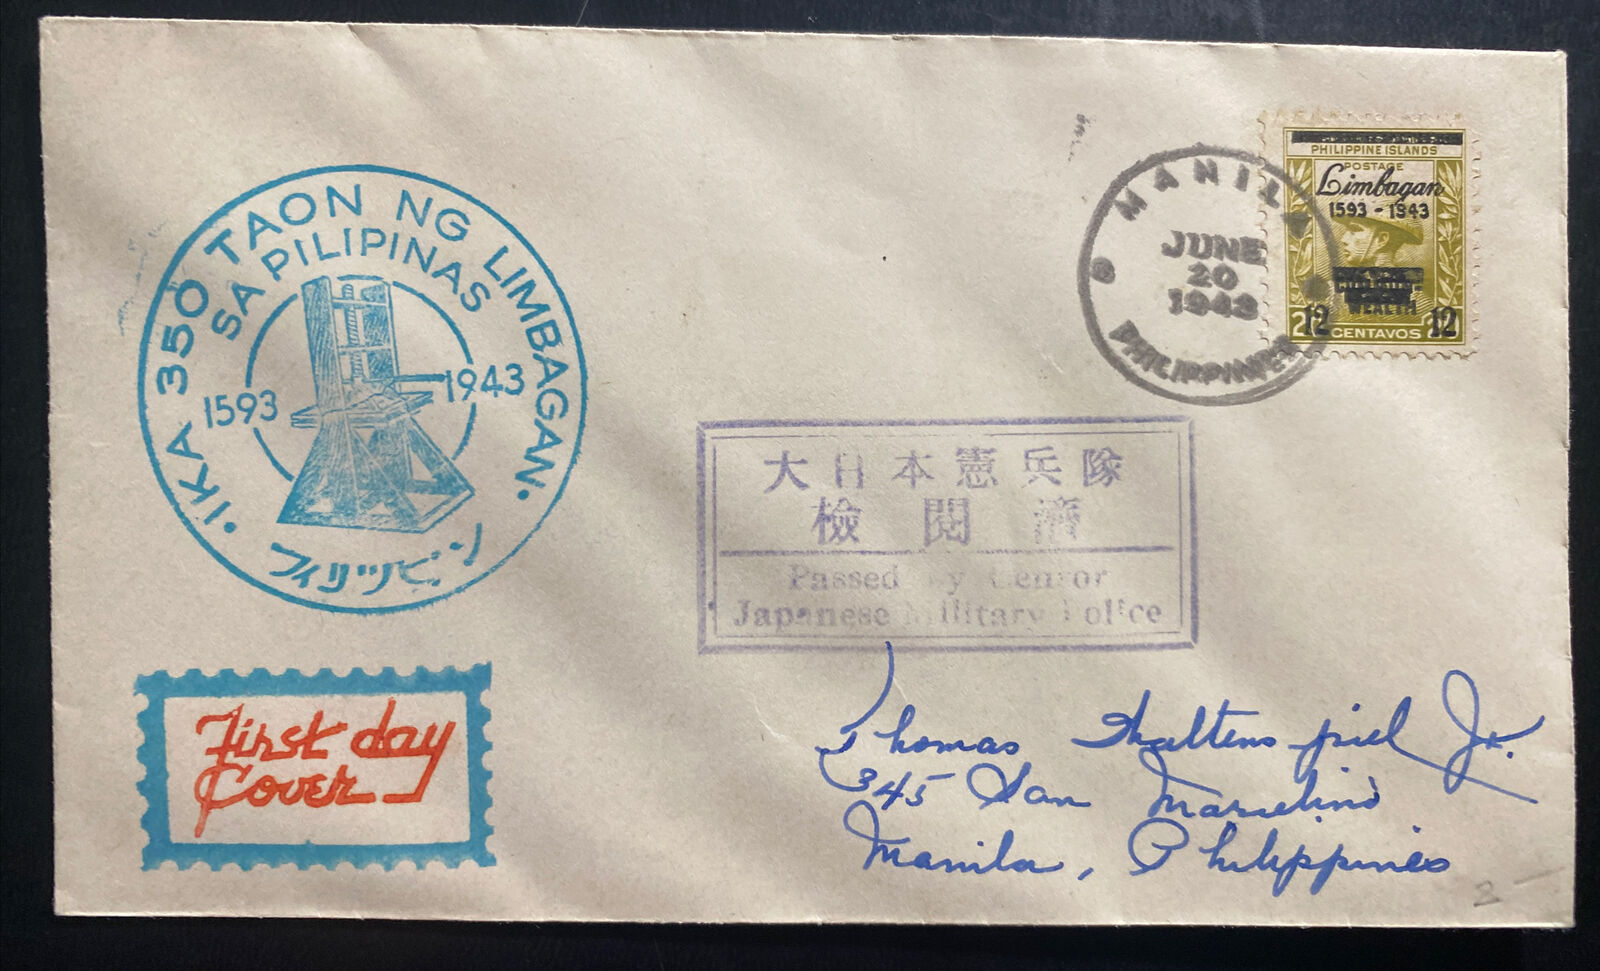 · IKA 350 TAON NG LIMBAGAN ·
SA PILIPINAS
1593 1943
フィリッピン
First day
Cover
MANILA
JUNE
20
1943
PHILIPPINES
PHILIPPINE ISLANDS
POSTAGE
Limbagan
1593 - 1943
WEALTH
12 CENTAVOS 12
大日本憲兵隊
檢閲濟
Passed by Censor
Japanese Military Police
Thomas Jr.
345 San Marcelino
Manila, Philippines